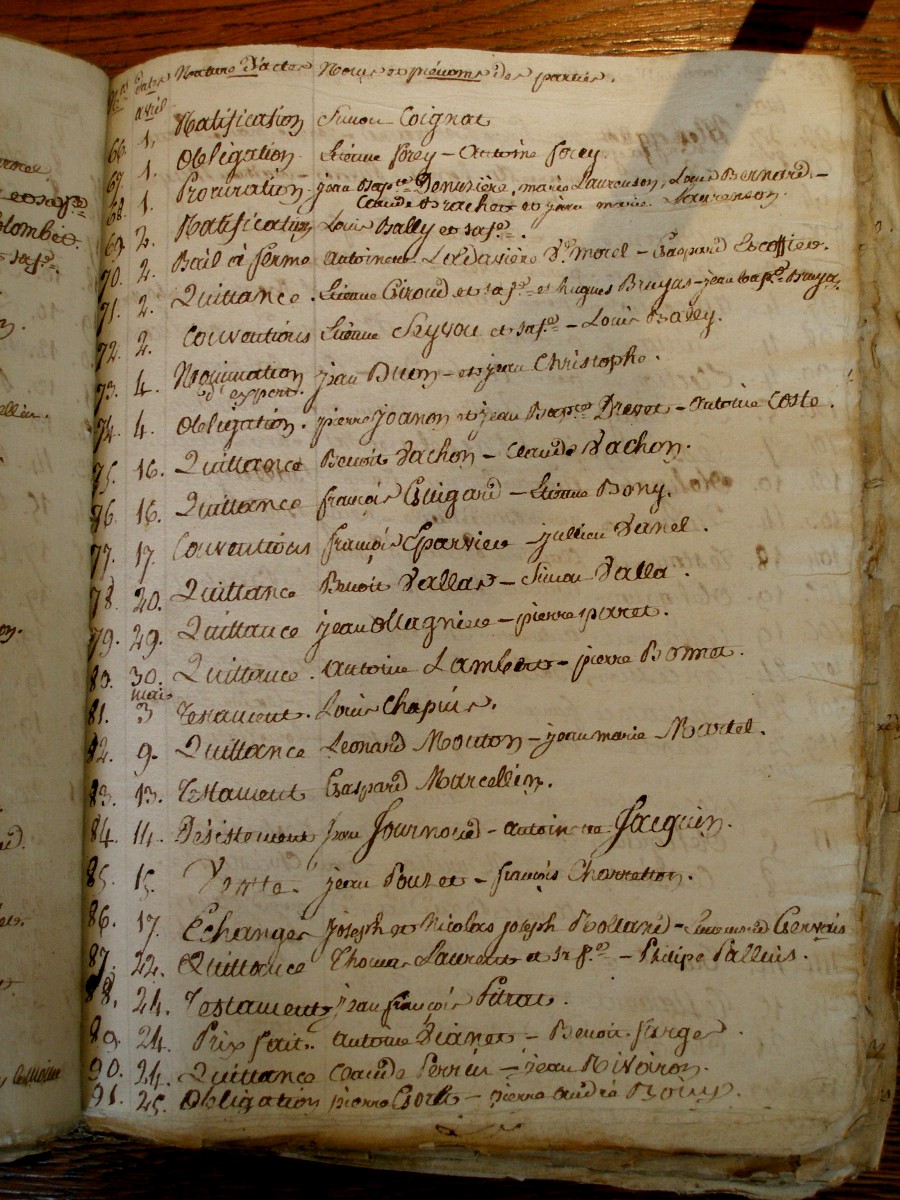 Nos dates Nature d'actes Noms et prénoms des parties.
avril
66. 1. Ratification Simon Coignat
67. 1. Obligation. Etienne forey - Antoine forey.
68. 1. Procuration. jean Bapte marie Laurenson, Louis Bernard -
Claude et jean marie Laurenson.
69. 2. Ratification Louis Bally et sa fe.
70. 2. Bail à ferme antoinette - Gaspard Escoffier.
71. 2. Quittance. Etienne Giroud et sa fe et hugues Bruyas - jean bapte Bruyas.
72. 2. Conventions Etienne Seyvou et sa fe - Louis Bally.
73. 4. Nomination jean - et jean Christophe.
d'expert.
74. 4. Obligation. pierre joanon et jean Bapte Drevet - antoine Coste.
75. 16. Quittance Benoit Vachon - Claude Vachon.
76. 16. Quittance françois Guigard - Etienne Bony.
77. 17. Conventions françois Eparvier - jullien Vanel.
78. 20. Quittance Benoit Vallas - Simon Valla.
79. 29. Quittance jean Ollagniere - pierre piret.
80. 30. Quittance. antoine Lambert - pierre Bonna.
mai
81. 3 Testament. Louis Chapuis.
82. 9. Quittance Leonard Mouton - jean marie Martel.
83. 13. Testament Gaspard Marcellin.
84. 14. Désistement jean Journoud - antoinette Jacquin.
85. 15. Vente. jean Pouzet - françois Charretton.
86. 17. Echanges joseph et Nicolas joseph Rolland - Gervais
87. 22. Quittance Thomas Laurent et sa fe - Philipe Palluis.
88. 24. Testament jean françois Pitrat.
89. 24. Prix fait. antoine Vianet - Benoit farge.
90. 24. Quittance Claude Perrin - jean Rivoiron.
91. 25. Obligation pierre - pierre andré